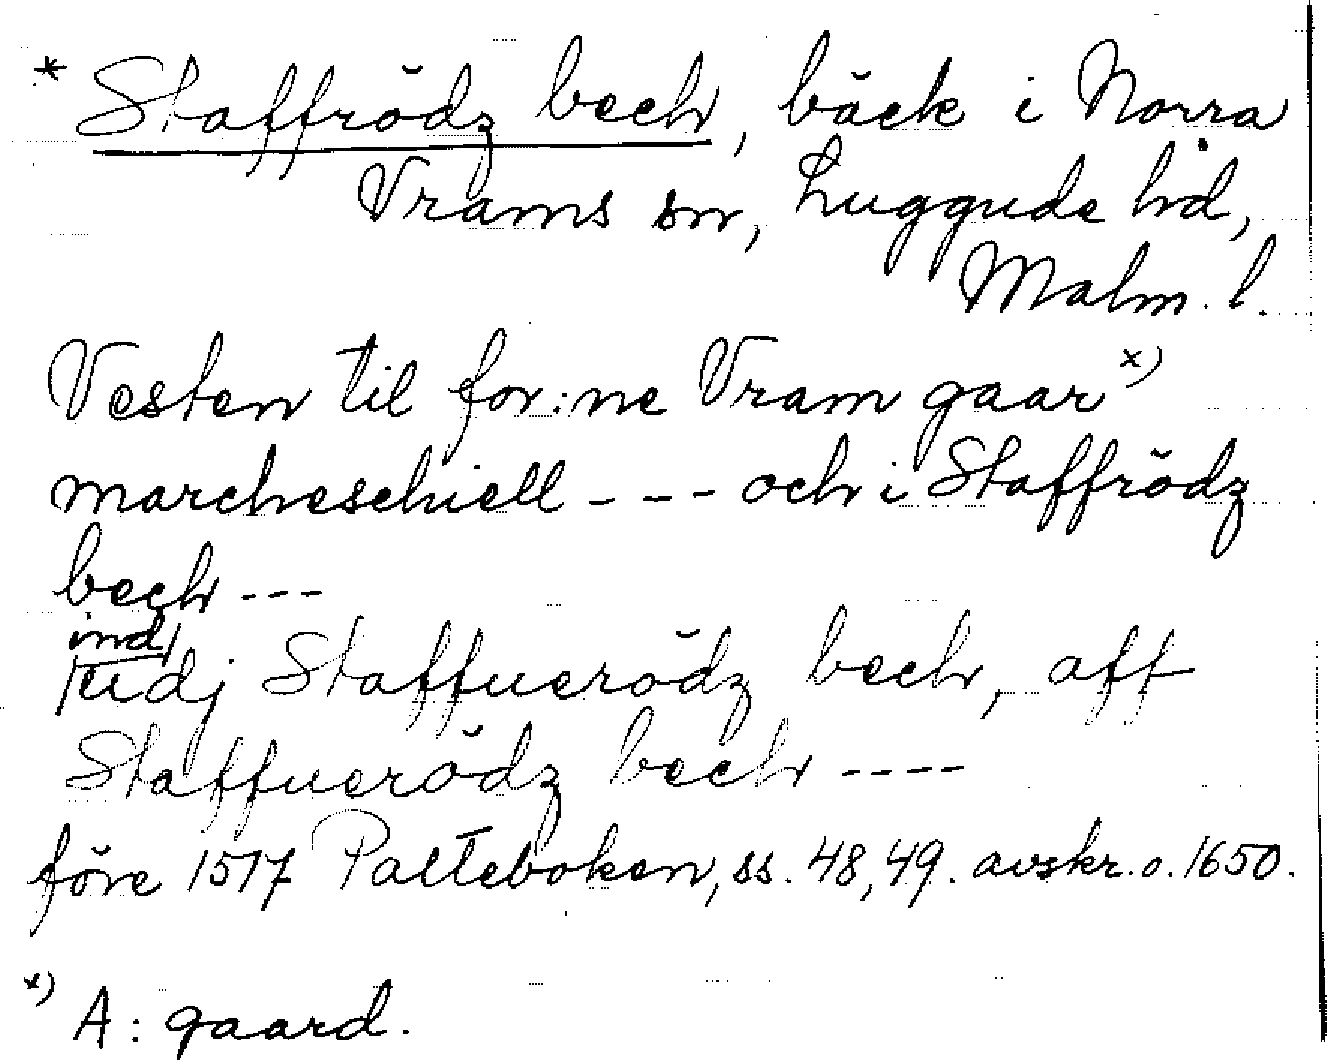 * Staffrödz bech, bäck i Norra
Vrams sn, Luggude hd,
Malm. l.
Vesten til for:ne Vram gaar x)
marcheschiell - - - och i Staffrödz
bech - - -
ind/
/udj Staffuerödz bech, aff
Staffuerödz bech - - - -
före 1517 Palteboken, ss. 48, 49. avskr. o. 1650.
x) A: gaard.